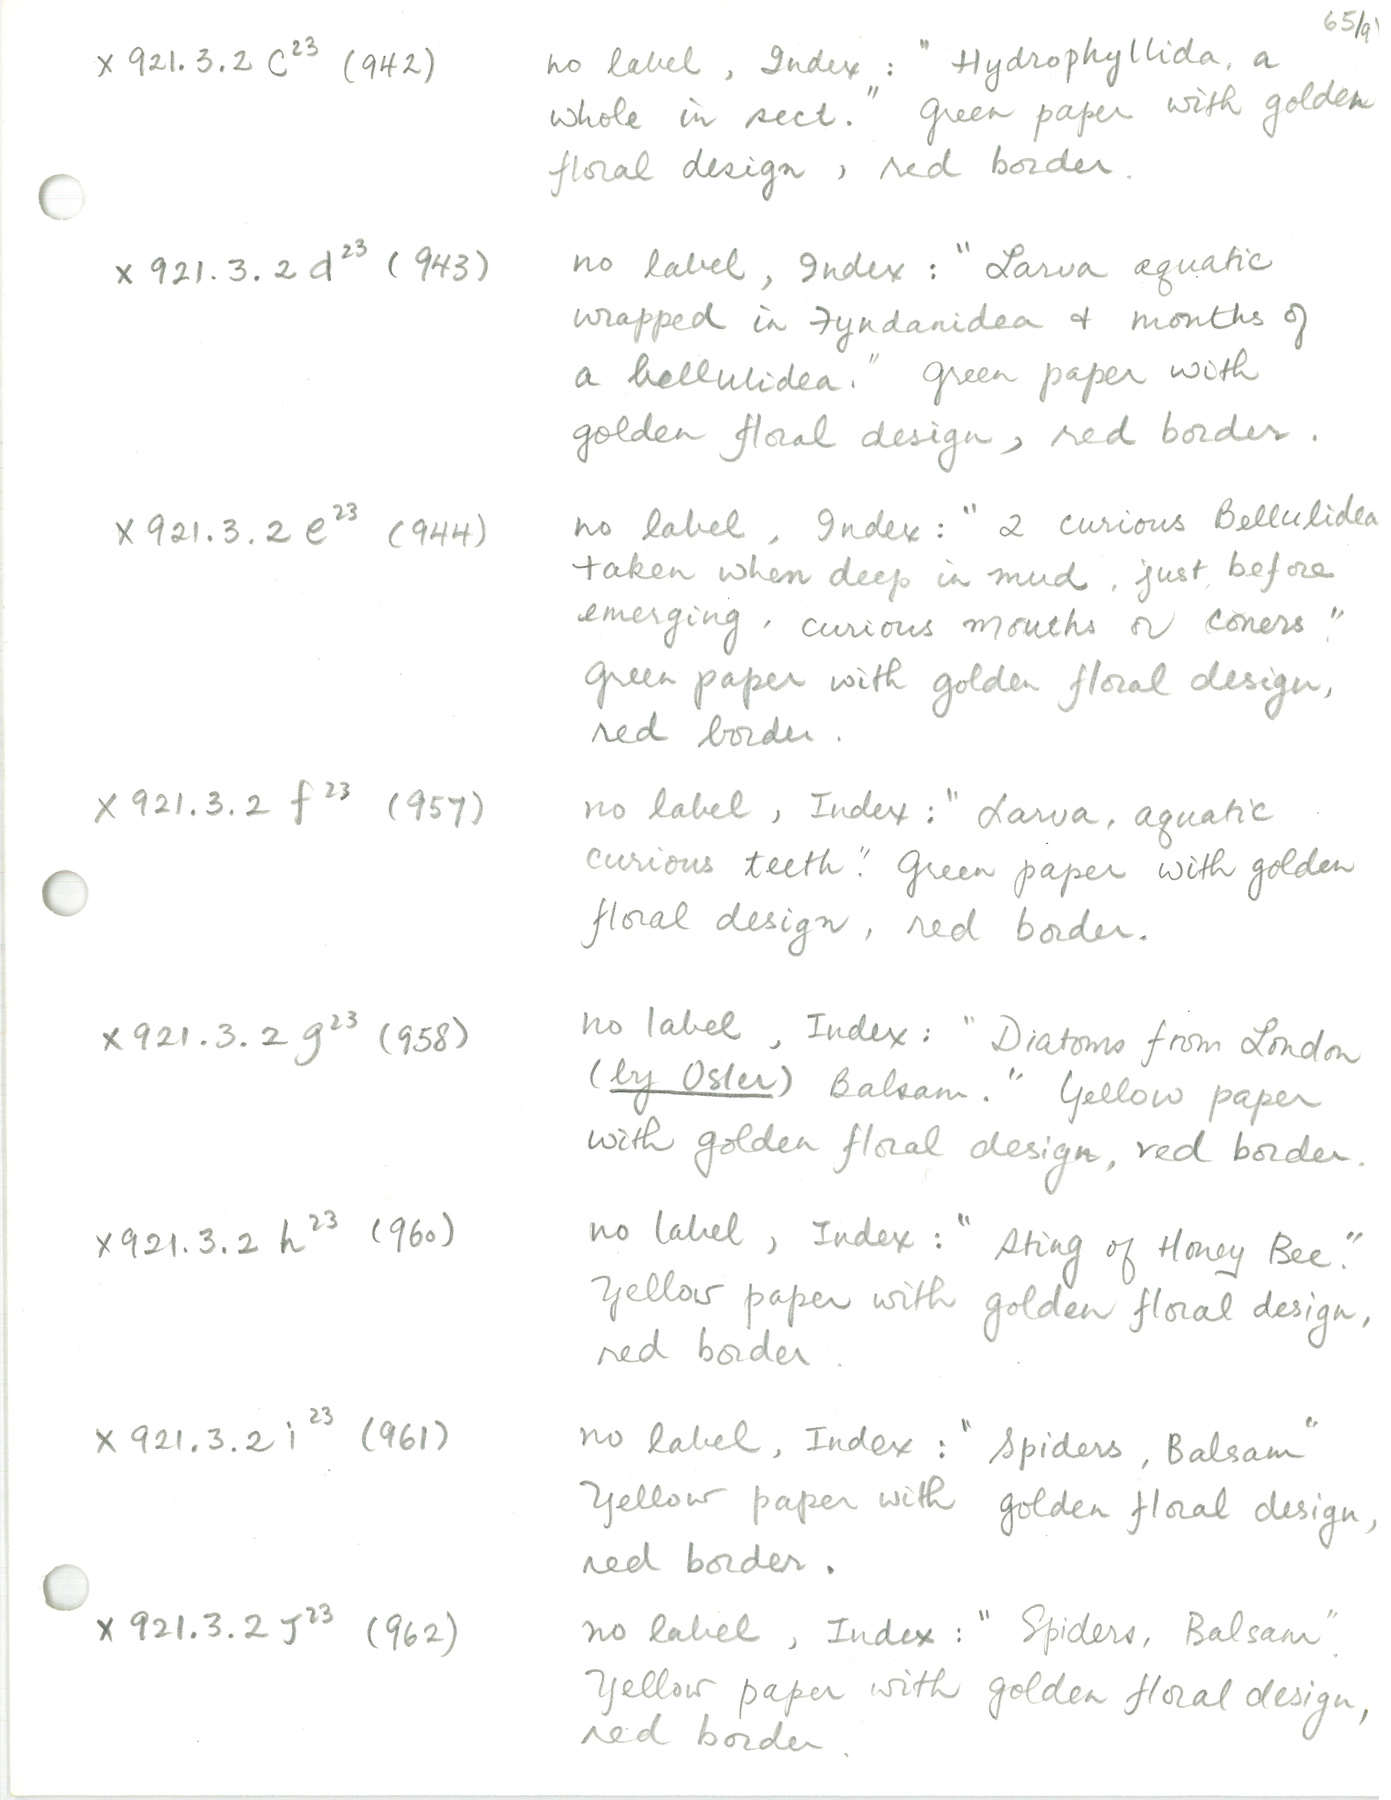 65/9
x 921.3.2 c²³ (942) no label, Index: "Hydrophyllida, a
whole in sect." Green paper with golden
floral design, red border.
x 921.3.2 d²³ (943) no label, Index: "Larva aquatic
wrapped in Fyndanidea & months of
a bellulidea." Green paper with
golden floral design, red border.
x 921.3.2 e²³ (944) no label, Index: "2 curious Bellulidea
taken when deep in mud, just before
emerging, curious mouths or coners".
Green paper with golden floral design,
red border.
x 921.3.2 f²³ (957) no label, Index: "Larva, aquatic
curious teeth". Green paper with golden
floral design, red border.
x 921.3.2 g²³ (958) no label, Index: "Diatoms from London
(by Osler) Balsam." Yellow paper
with golden floral design, red border.
x 921.3.2 h²³ (960) no label, Index: "Sting of Honey Bee."
Yellow paper with golden floral design,
red border.
x 921.3.2 i²³ (961) no label, Index: "Spiders, Balsam"
Yellow paper with golden floral design,
red border.
x 921.3.2 J²³ (962) no label, Index: "Spiders, Balsam".
Yellow paper with golden floral design,
red border.